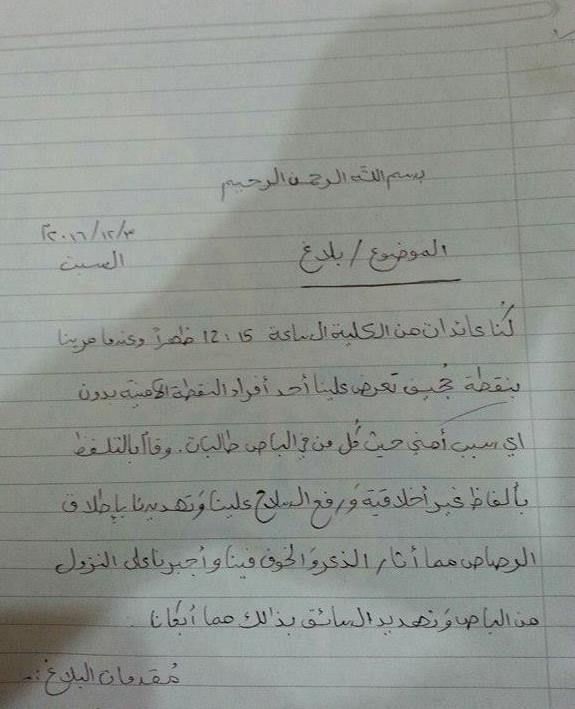 بسم الله الرحمن الرحيم
٢٠١٦/١٢/٣م
السبت
الموضوع / بلاغ
كُنا عائدات من الكلية الساعة 12:15 ظهراً وعندما مرينا
بنقطة تعرض علينا أحد أفراد النقطة الأمنية بدون
اي سبب أمني حيث كُل من في الباص طالبات. وقام بالتلفظ
بألفاظ غير أخلاقية وَرفع السلاح علينا وَتهديدنا بإطلاق
الرصاص مما أثار الذعر وَالخوف فينا وأجبرنا على النزول
من الباص وَتهديد السائق بذالك مما أبكانا
مُقدمات البلاغ :-